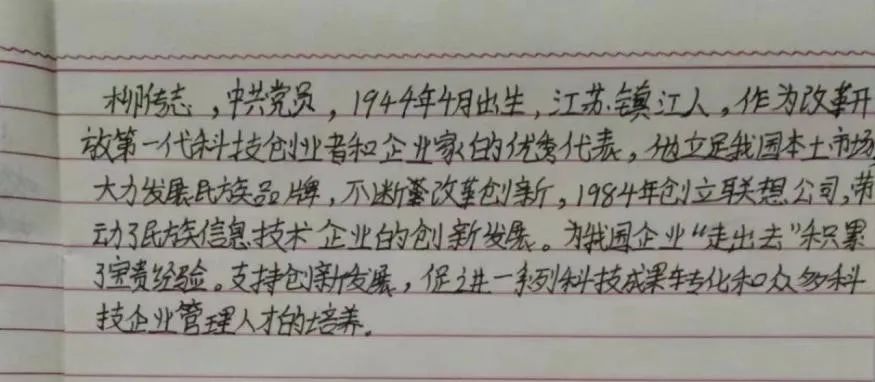 柳传志，中共党员，1944年4月出生，江苏镇江人，作为改革开
放第一代科技创业者和企业家的优秀代表，他立足我国本土市场
大力发展民族品牌，不断改革创新，1984年创立联想公司，带
动了民族信息技术企业的创新发展。为我国企业“走出去”积累
了宝贵经验。支持创新发展，促进一系列科技成果转化和众多科
技企业管理人才的培养。